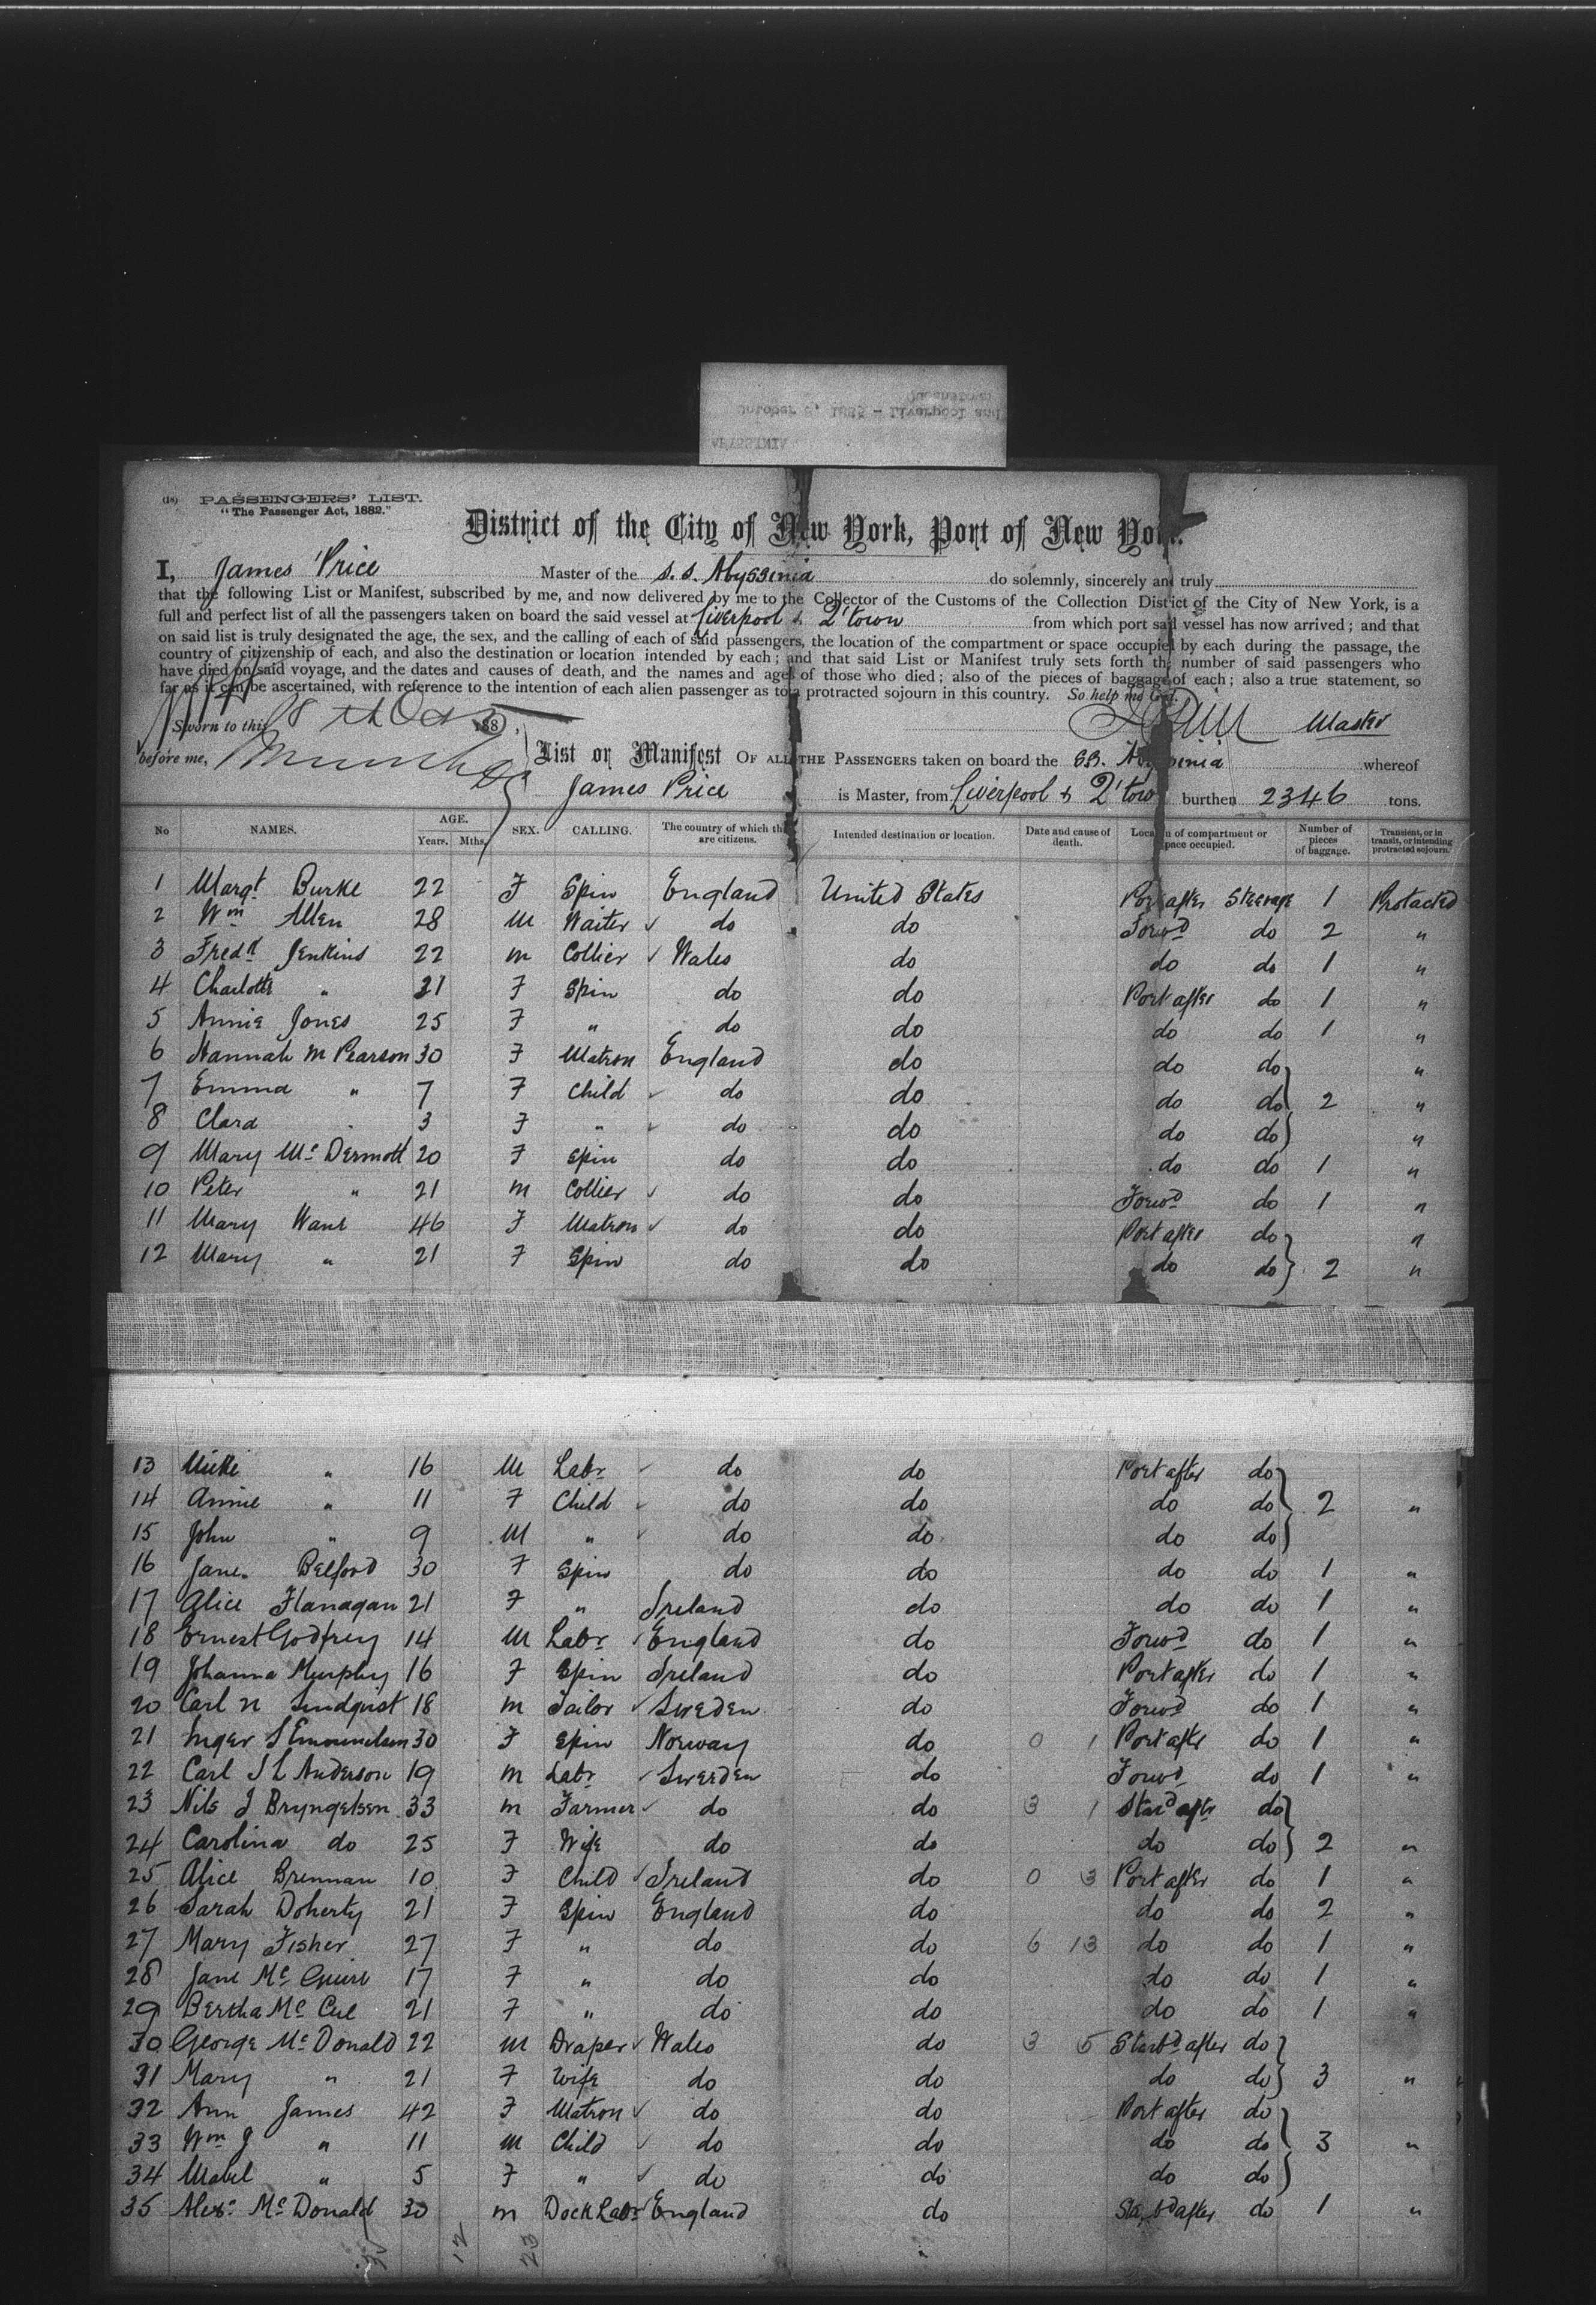 ABYSSINIA
October 8, 1885 - Liverpool and
Queenstown
(18) PASSENGERS' LIST.
"The Passenger Act, 1882."
District of the City of New York, Port of New York.
I, James Price Master of the s.s. Abyssinia do solemnly, sincerely and truly
that the following List or Manifest, subscribed by me, and now delivered by me to the Collector of the Customs of the Collection District of the City of New York, is a
full and perfect list of all the passengers taken on board the said vessel at Liverpool & Q'town from which port said vessel has now arrived; and that
on said list is truly designated the age, the sex, and the calling of each of said passengers, the location of the compartment or space occupied by each during the passage, the
country of citizenship of each, and also the destination or location intended by each; and that said List or Manifest truly sets forth the number of said passengers who
have died on said voyage, and the dates and causes of death, and the names and ages of those who died; also of the pieces of baggage of each; also a true statement, so
far as it can be ascertained, with reference to the intention of each alien passenger as to a protracted sojourn in this country. So help me God.
Sworn to this 8th Oct 188 Master
before me,
List or Manifest OF ALL THE PASSENGERS taken on board the SS. Abyssinia whereof
James Price is Master, from Liverpool & Q'town burthen 2346 tons.
No NAMES. AGE. Years. Mths. SEX. CALLING. The country of which they are citizens. Intended destination or location. Date and cause of death. Location of compartment or space occupied. Number of pieces of baggage. Transient, or in transit, or intending protracted sojourn.
1 Margt Burke 22 F Spin England United States Port after Steerage 1 Protacted
2 Wm Allen 28 M Waiter do do Forwd do 2 "
3 Fredk Jenkins 22 m Collier Wales do do do 1 "
4 Charlotte " 21 F Spin do do Port after do 1 "
5 Annie Jones 25 F " do do do do 1 "
6 Hannah M Pearson 30 F Matron England do do do "
7 Emma " 7 F Child do do do do 2 "
8 Clara " 3 F " do do do do "
9 Mary McDermott 20 F Spin do do do do 1 "
10 Peter " 21 m Collier do do Forwd do 1 "
11 Mary Wane 46 F Matron do do Port after do "
12 Mary " 21 F Spin do do do do 2 "
13 " 16 M Labr do do Port after do
14 Annie " 11 F Child do do do do 2 "
15 John " 9 M " do do do do
16 Jane Belford 30 F Spin do do do do 1 "
17 Alice Flanagan 21 F " Ireland do do do 1 "
18 Ernest Godfrey 14 M Labr England do Forwd do 1 "
19 Johanna Murphy 16 F Spin Ireland do Port after do 1 "
20 Carl N Lindqvist 18 m Tailor Sweden do Forwd do 1 "
21 Inger 30 F Spin Norway do 0 1 Port after do 1 "
22 Carl J L Anderson 19 m Labr Sweeden do Forwd do 1 "
23 Nils J Bryngelsen 33 m Farmer do do 3 1 Starbd after do
24 Carolina do 25 F Wife do do do do 2 "
25 Alice Brennan 10 F Child Ireland do 0 3 Port after do 1 "
26 Sarah Doherty 21 F Spin England do do do 2 "
27 Mary Fisher 27 F " do do 6 13 do do 1 "
28 Jane McGuire 17 F " do do do do 1 "
29 Bertha McCue 21 F " do do do do 1 "
30 George McDonald 22 m Draper Wales do 3 5 Starbd after do
31 Mary " 21 F Wife do do do do 3 "
32 Ann James 42 F Matron do do Port after do
33 Wm J " 11 m Child do do do do 3 "
34 Mabel " 5 F " do do do do
35 Alexr McDonald 30 m Dock Labr England do Starbd after do 1 "
12 23